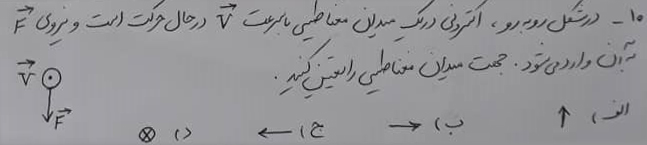 ۱۰ـ درشکل روبه رو، الکترونی دریک میدان مغناطیسی باسرعت V⃗ درحال حرکت است و نیروی F⃗
به آن وارد می شود. جهت میدان مغناطیسی را تعیین کنید.
V⃗
F⃗
الف) ↑ ب) → ج) ← د) ⊗